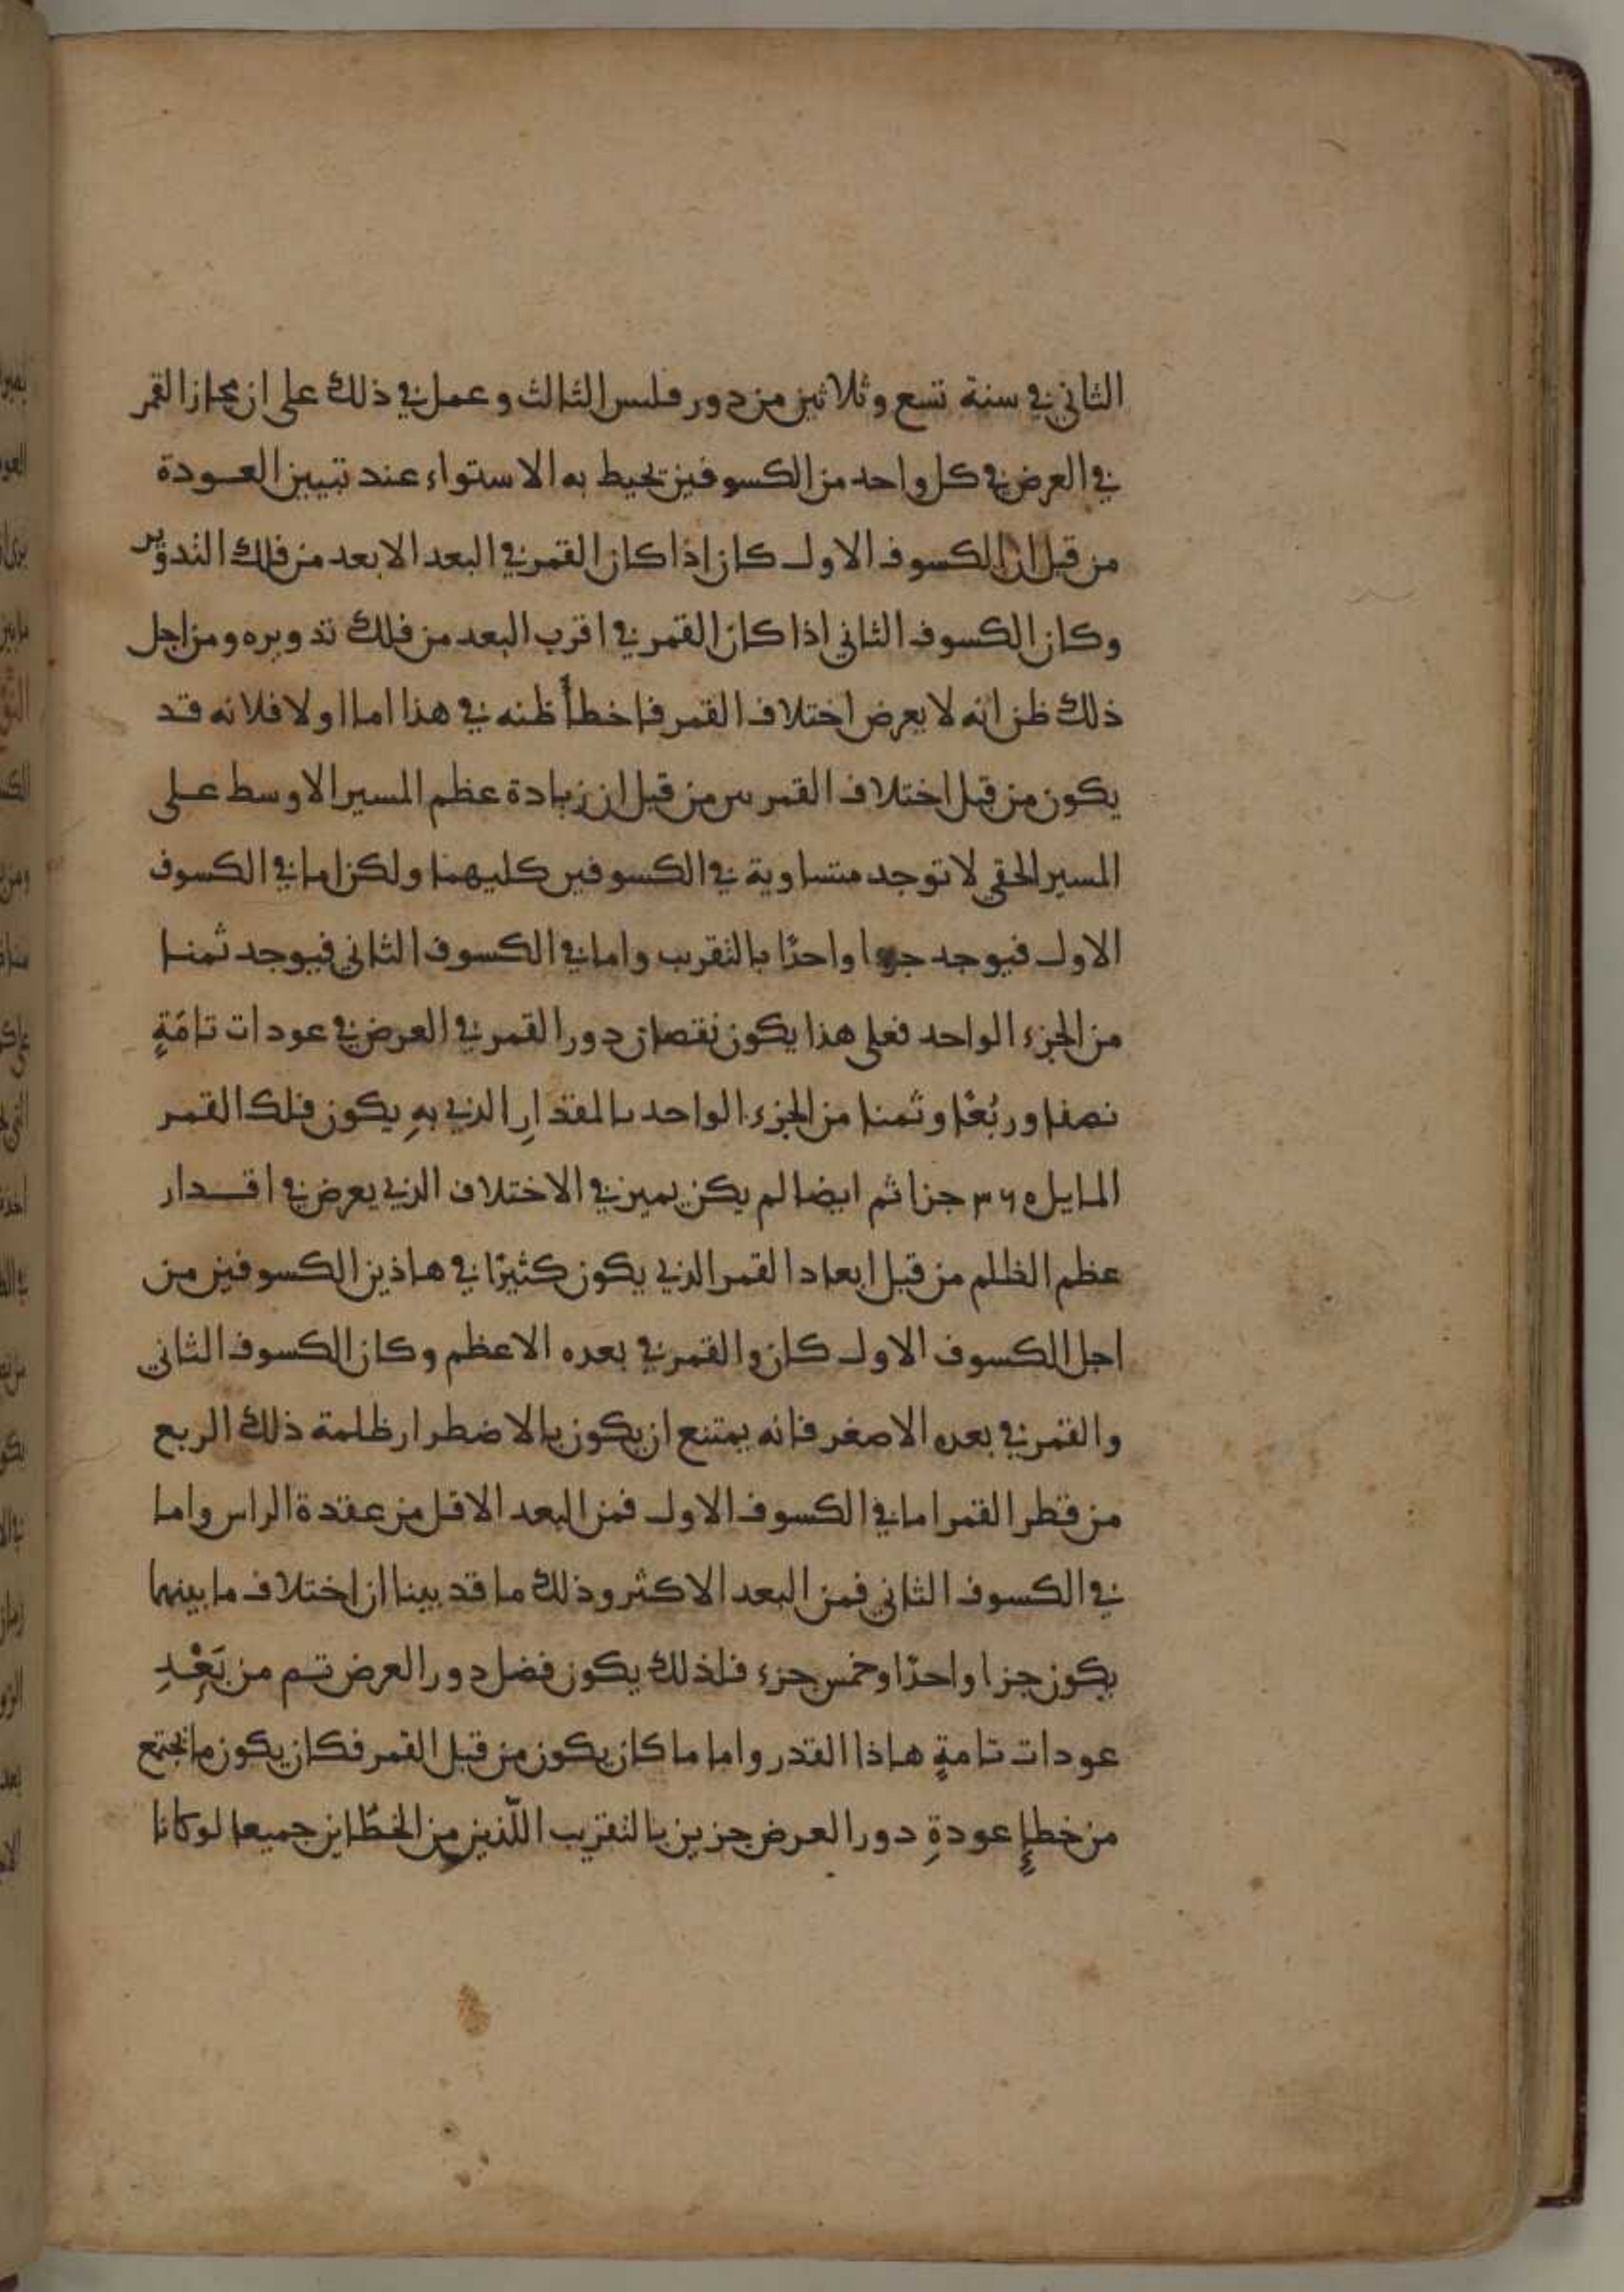 الثاني في سنة تسع وثلاثين من دور فلبس الثالث وعمل في ذلك على ان مجاز القمر
في العرض في كل واحد من الكسوفين يحيط به الاستواء عند تبيين العودة
من قبل ان الكسوف الاول كان اذا كان القمر في البعد الابعد من فلك التدوير
وكان الكسوف الثاني اذا كان القمر في اقرب البعد من فلك تدويره ومن اجل
ذلك ظن انه لا يعرض اختلاف القمر فاخطأ ظنه في هذا اما اولا فلانه قد
يكون من قبل اختلاف القمر من قبل ان زيادة عظم المسير الاوسط على
المسير الحقي لا توجد متساوية في الكسوفين كليهما ولكن اما في الكسوف
الاول فيوجد جزءا واحدًا بالتقريب واما في الكسوف الثاني فيوجد ثمنا
من الجزء الواحد فعلى هذا يكون نقصان دور القمر في العرض في عودات تامّةٍ
نصفا وربُعًا وثمنا من الجزء الواحد بالمقدارِ الذي بهِ يكون فلك القمر
المايل ٣٦٥ جزا ثم ايضا لم يكن يميز في الاختلاف الذي يعرض في اقدار
عظم الظلم من قبل ابعاد القمر الذي يكون كثيرًا في هاذين الكسوفين من
اجل الكسوف الاول كان والقمر في بعده الاعظم وكان الكسوف الثاني
والقمر في بعده الاصغر فانه يمتنع ان يكون بالاضطرار ظلمة ذلك الربع
من قطر القمر اما في الكسوف الاول فمن البعد الاقل من عقدة الراس واما
في الكسوف الثاني فمن البعد الاكثر وذلك ما قد بينا ان اختلاف ما بينهما
يكون جزا واحدًا وخمس جزء فلذلك يكون فضل دور العرض تم من بَعْدِ
عودات تامةٍ هاذا القدر واما ما كان يكون من قبل القمر فكان يكون ما يجتمع
من خطإٍ عودةِ دور العرض جزين بالتقريب اللّذين من الخطّاين جميعا لو كانا